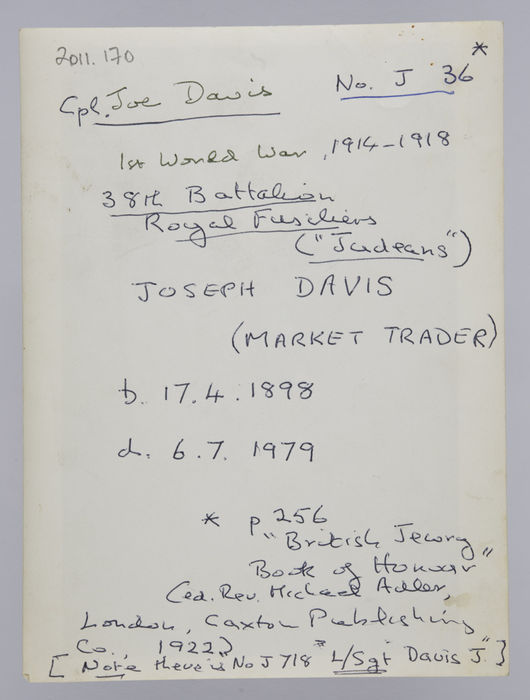 2011.170
*
Cpl. Joe Davis No. J 36
1st World War, 1914-1918
38th Battalion
Royal Fusiliers
("Judeans")
JOSEPH DAVIS
(MARKET TRADER)
b. 17.4.1898
d. 6.7.1979
* p 256
"British Jewry"
Book of Honour
(ed. Rev. Michael Adler,
London, Caxton Publishing
Co., 1922)
[Note there is No J 718 "L/Sgt Davis J."]